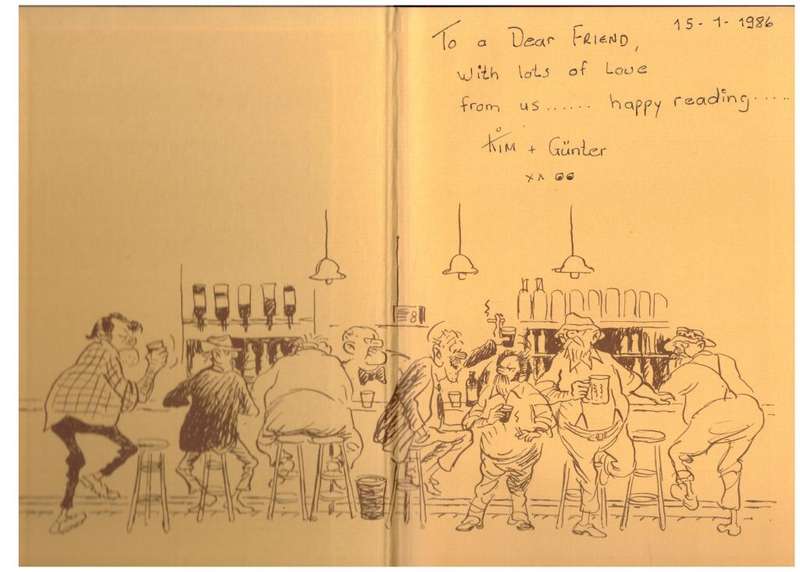 15-1-1986
To a Dear FRIEND,
with lots of Love
from us...... happy reading.....
KIM + Günter
8